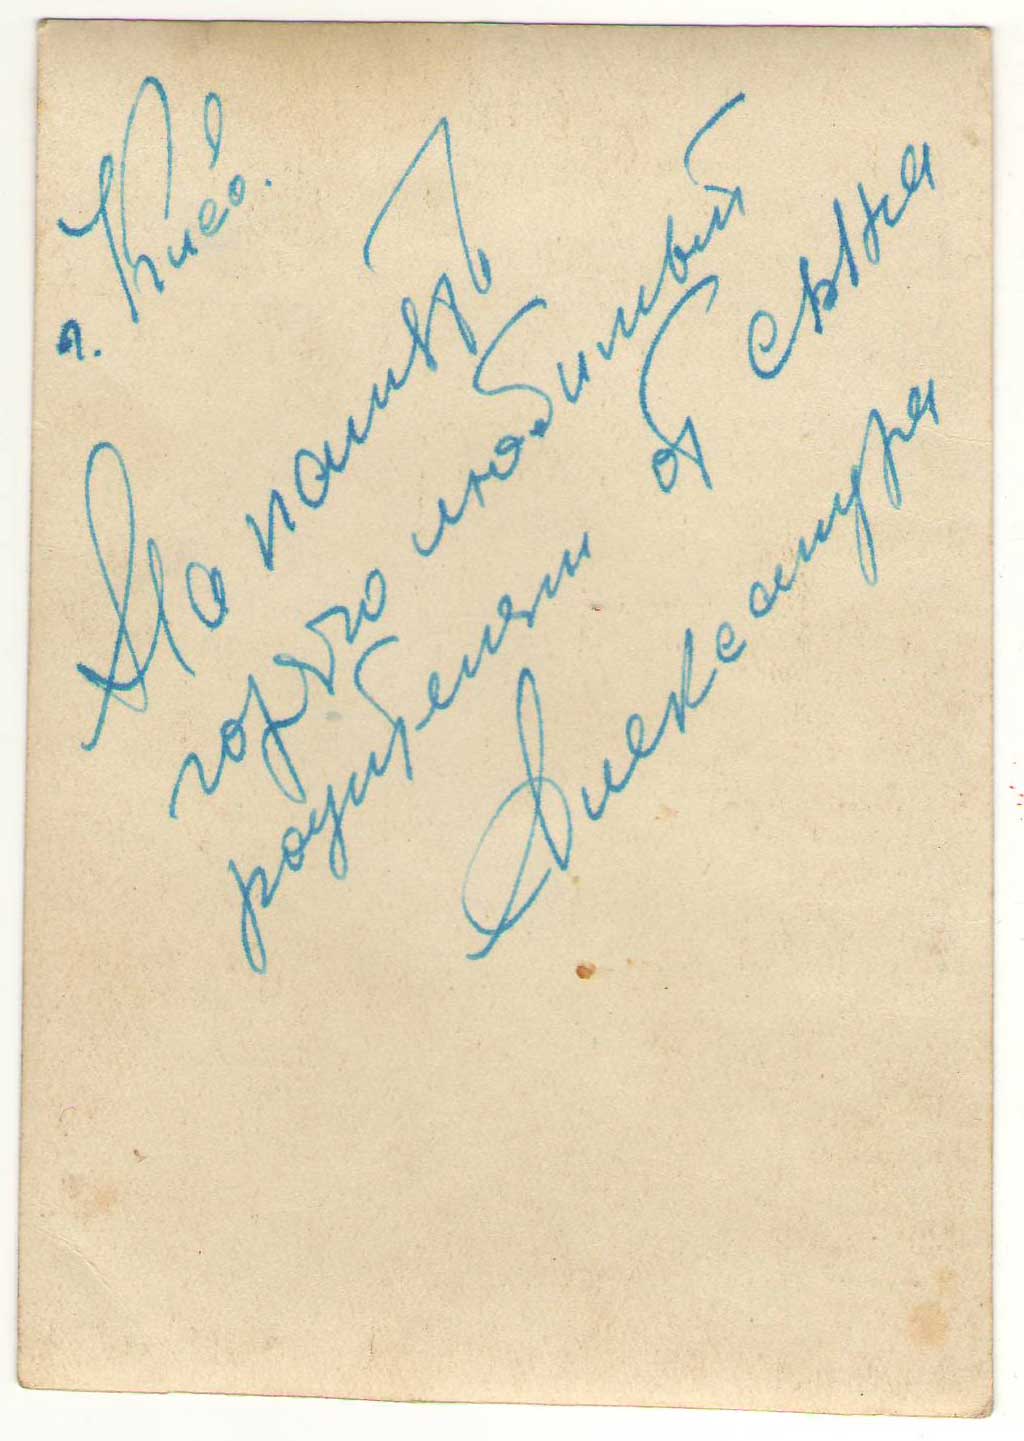 г. Киев.
На память
горячо любимый
родителям от сына
Александра